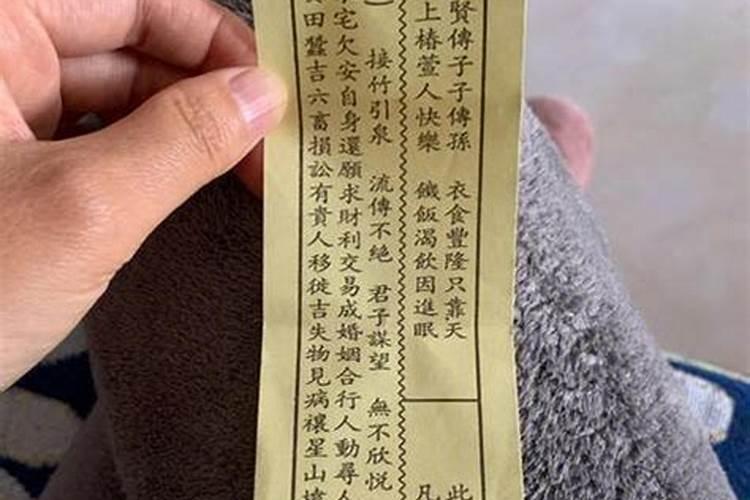 賢傳子子傳孫 衣食豐隆只靠天 此
上椿萱人快樂 饑飯渴飲因進眠 凡
接竹引泉 流傳不絕 君子謀望 無不欣悅
宅欠安自身還願求財利交易成婚姻合行人動尋人
田蠶吉六畜損訟有貴人移徙吉失物見病禳星山